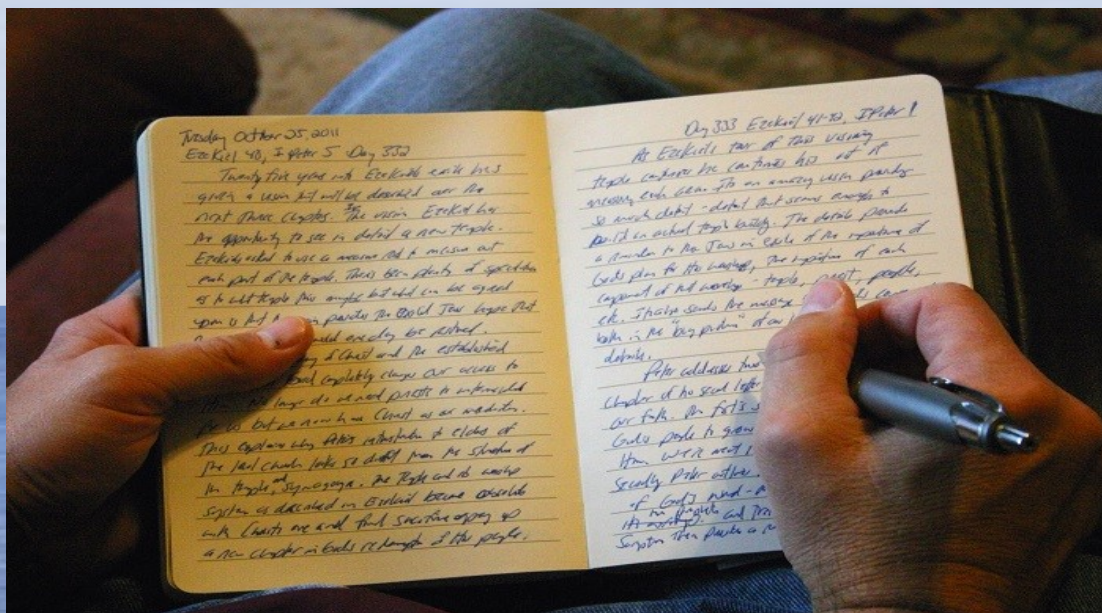 Tuesday October 25, 2011
Ezekiel 40, I Peter 5 Day 332
Twenty five years into Ezekiel's exile he's
given a vision that will be described over the
next three chapters. In the vision Ezekiel has
the opportunity to see in detail a new temple.
Ezekiel's asked to use a measure rod to measure out
each part of the temple. There's been plenty of speculation
as to what temple this might be but what can be agreed
upon is that the vision provides the exiled Jews hope that
eventually be restored.
of Christ and the established
completely changes our access to
longer do we need priests to intercede
for us but we now have Christ as our mediator.
This explains why Peter's instruction to elders of
the local church looks so different from the structure of
the temple and synagogue. The temple and its worship
system as described in Ezekiel became obsolete
with Christ's one and final sacrifice opening up
a new chapter in God's redemption of His people.
Day 333 Ezekiel 41-42, II Peter 1
As Ezekiel's tour of this visionary
temple continues he continues his
measuring each area. It's an amazing vision providing
so much detail - detail that seems enough to
build an actual temple building. The details provide
a reminder to the Jews in exile of the importance of
God's plan for His worship, the importance of each
component of that worship - temple, priest, people,
etc. It also sends the message
both in the "big picture" of our
details.
Peter addresses two
chapter of his second letter
our faith. The first
God's people to grow
Him. We're
Secondly Peter
of God's word -
its
and
Scripture then provides a